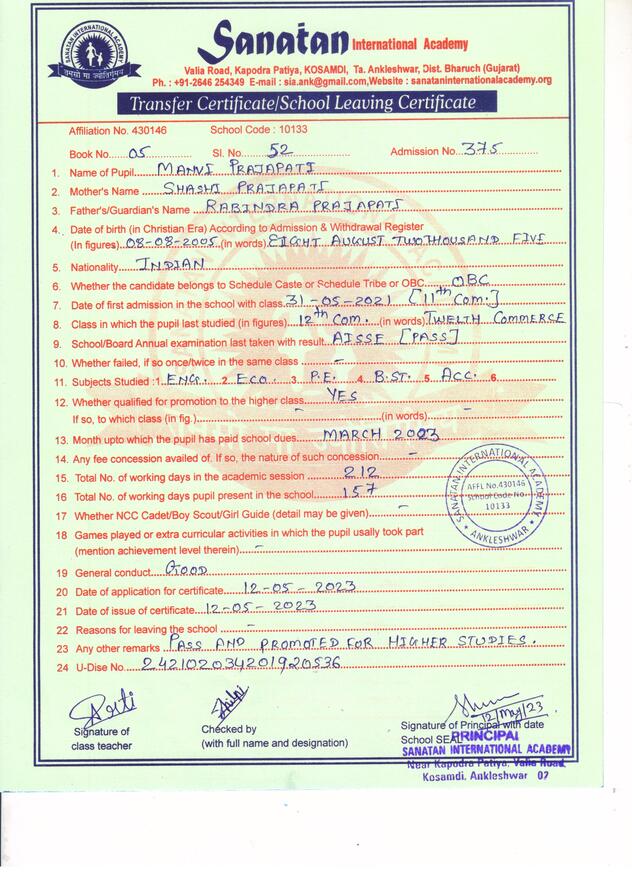 SANATAN INTERNATIONAL ACADEMY
तमसो मा ज्योतिर्गमय
Sanatan International Academy
Valia Road, Kapodra Patiya, KOSAMDI, Ta. Ankleshwar, Dist. Bharuch (Gujarat)
Ph. : +91-2646 254349 E-mail : sia.ank@gmail.com,Website : sanataninternationalacademy.org
Transfer Certificate/School Leaving Certificate
Affiliation No. 430146 School Code : 10133
Book No.....05..... Sl. No.....52..... Admission No.375
1. Name of Pupil MANVI PRAJAPATI
2. Mother's Name SHASHI PRAJAPATI
3. Father's/Guardian's Name RABINDRA PRAJAPATI
4. Date of birth (in Christian Era) According to Admission & Withdrawal Register
(In figures) 08-08-2005 (in words) EIGHT AUGUST TWOTHOUSAND FIVE
5. Nationality INDIAN
6. Whether the candidate belongs to Schedule Caste or Schedule Tribe or OBC OBC
7. Date of first admission in the school with class 31-05-2021 [11th Com.]
8. Class in which the pupil last studied (in figures) 12th Com. (in words) TWELTH COMMERCE
9. School/Board Annual examination last taken with result AISSE [PASS]
10. Whether failed, if so once/twice in the same class -
11. Subjects Studied :1. ENG. 2. ECO. 3. P.E. 4. B.ST. 5. ACC. 6.
12. Whether qualified for promotion to the higher class YES
If so, to which class (in fig.) - (in words) -
13. Month upto which the pupil has paid school dues MARCH 2023
14. Any fee concession availed of. If so, the nature of such concession -
15. Total No. of working days in the academic session 212
16 Total No. of working days pupil present in the school 157
17 Whether NCC Cadet/Boy Scout/Girl Guide (detail may be given) -
18 Games played or extra curricular activities in which the pupil usally took part
(mention achievement level therein) -
19 General conduct GOOD
20 Date of application for certificate 12-05-2023
21 Date of issue of certificate 12-05-2023
22 Reasons for leaving the school -
23 Any other remarks PASS AND PROMOTED FOR HIGHER STUDIES.
24 U-Dise No. 242102034201920536
SANATAN INTERNATIONAL ACADEMY
AFFL No.430146
School Code No.
10133
★ ANKLESHWAR ★
12/May/23
Signature of class teacher
Checked by
(with full name and designation)
Signature of Principal with date
School SEAL PRINCIPAL
SANATAN INTERNATIONAL ACADEMY
Near Kapodra Patiya, Valia Road,
Kosamdi, Ankleshwar 02